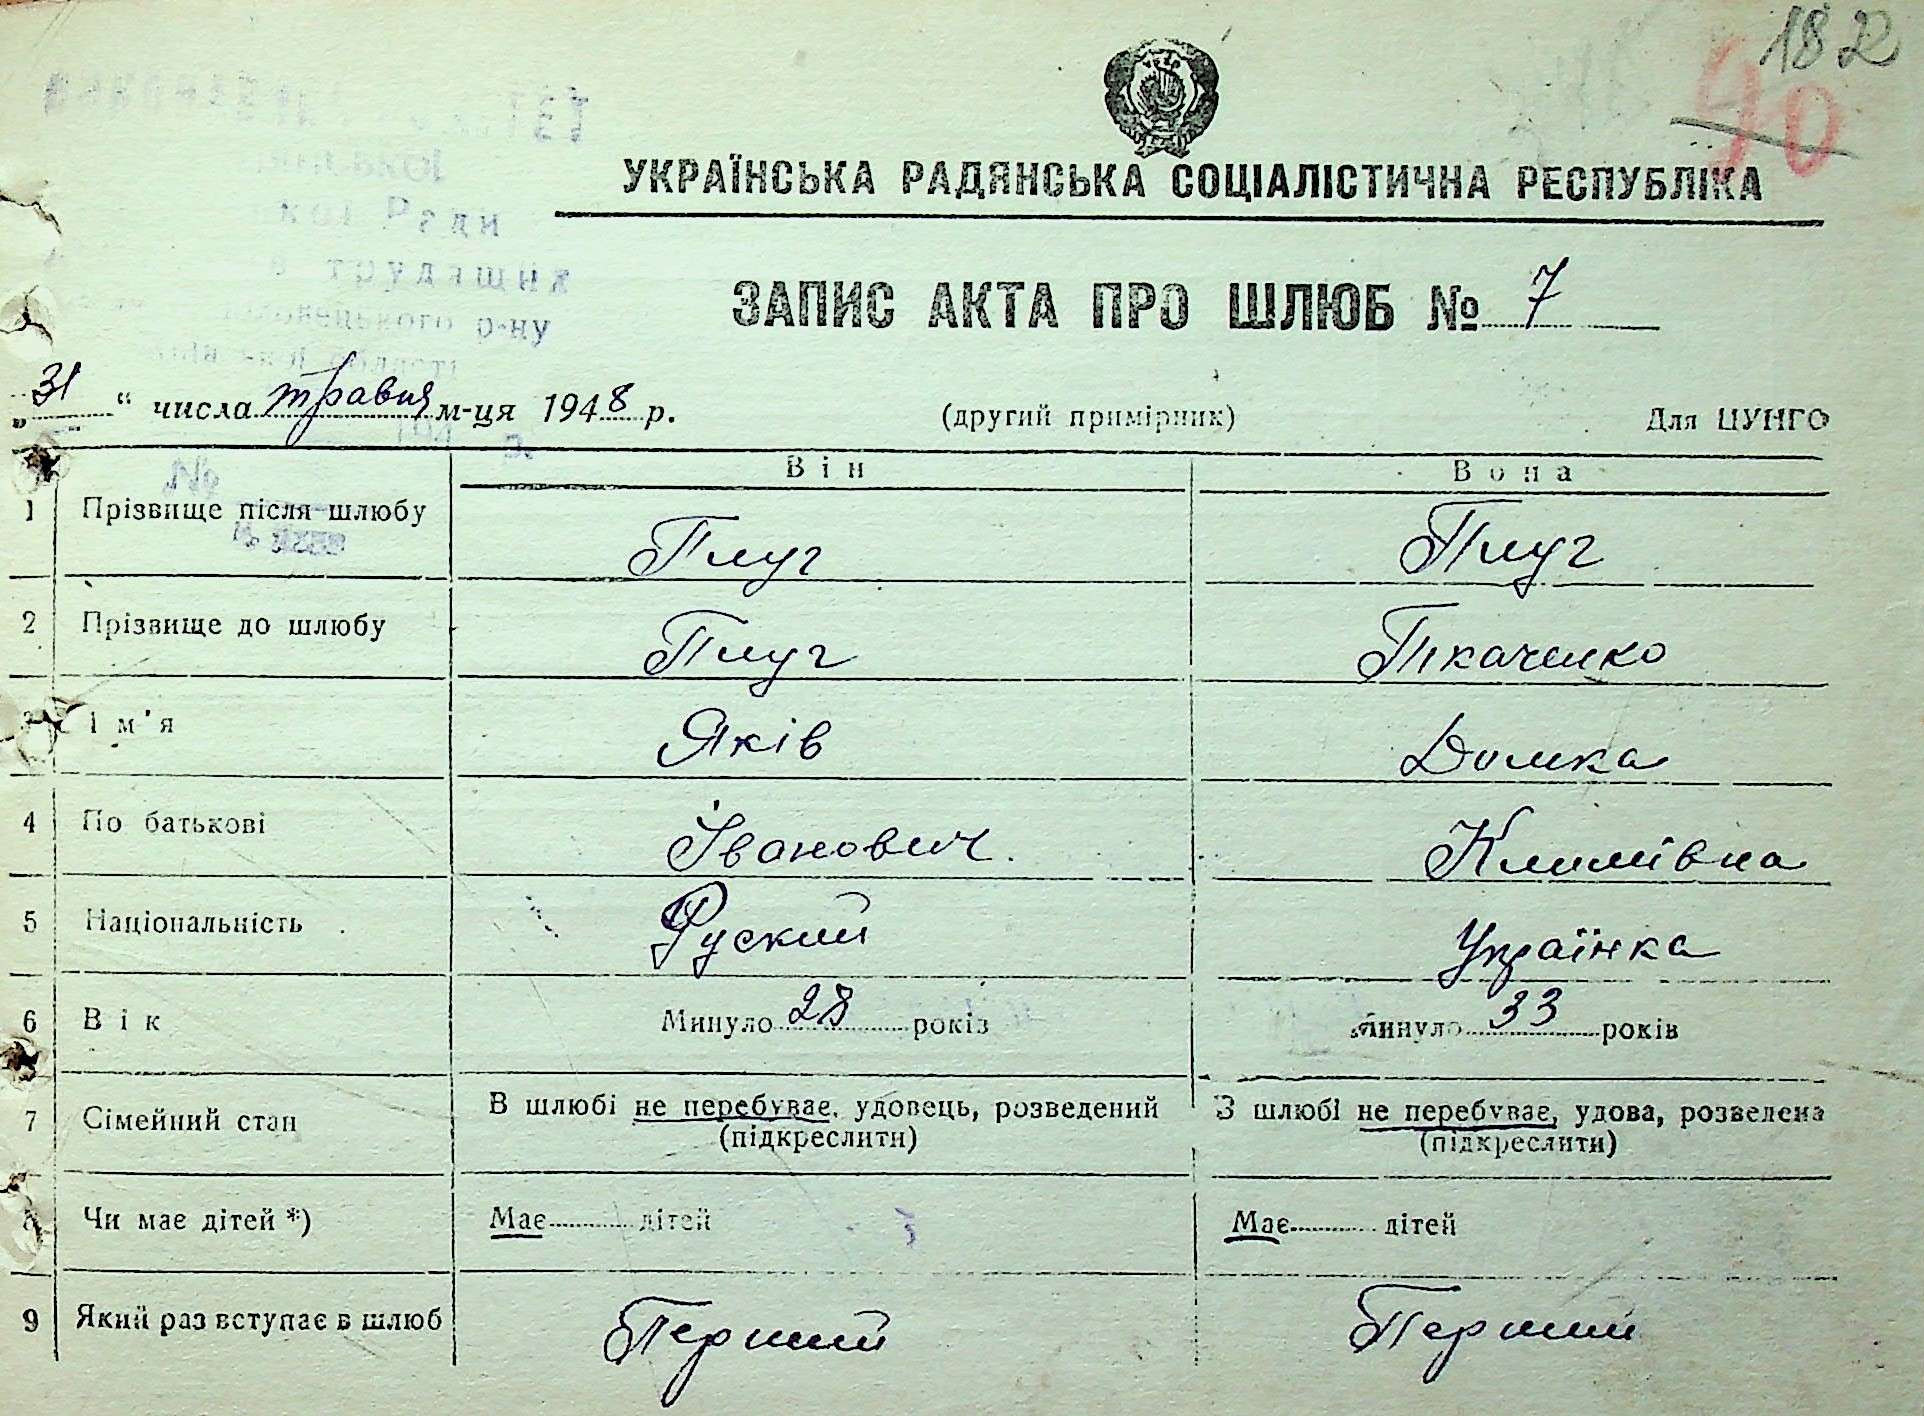 182
90
УКРАЇНСЬКА РАДЯНСЬКА СОЦІАЛІСТИЧНА РЕСПУБЛІКА
ЗАПИС АКТА ПРО ШЛЮБ № 7
„31“ числа травня м-ця 1948 р. (другий примірник) Для ЦУНГО
Він Вона
1 Прізвище після шлюбу Плуг Плуг
2 Прізвище до шлюбу Плуг Ткаченко
3 Ім'я Яків Домка
4 По батькові Іванович Климівна
5 Національність Руский Українка
6 Вік Минуло 28 років Минуло 33 років
7 Сімейний стан В шлюбі не перебуває, удовець, розведений В шлюбі не перебуває, удова, розведена
(підкреслити) (підкреслити)
8 Чи має дітей *) Має дітей Має дітей
9 Який раз вступає в шлюб Перший Перший
кої Ради
в трудящих
р-ну
області
№